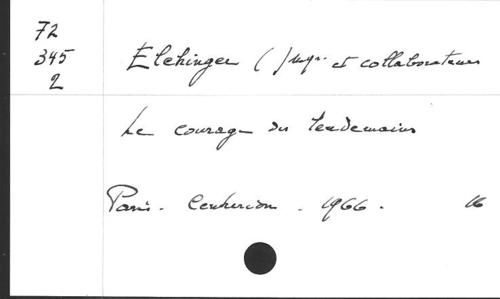 72
345
2
Elchinger ( ) Mgr. et collaborateurs
Le courage des lendemains
Paris - Centurion - 1966. 16